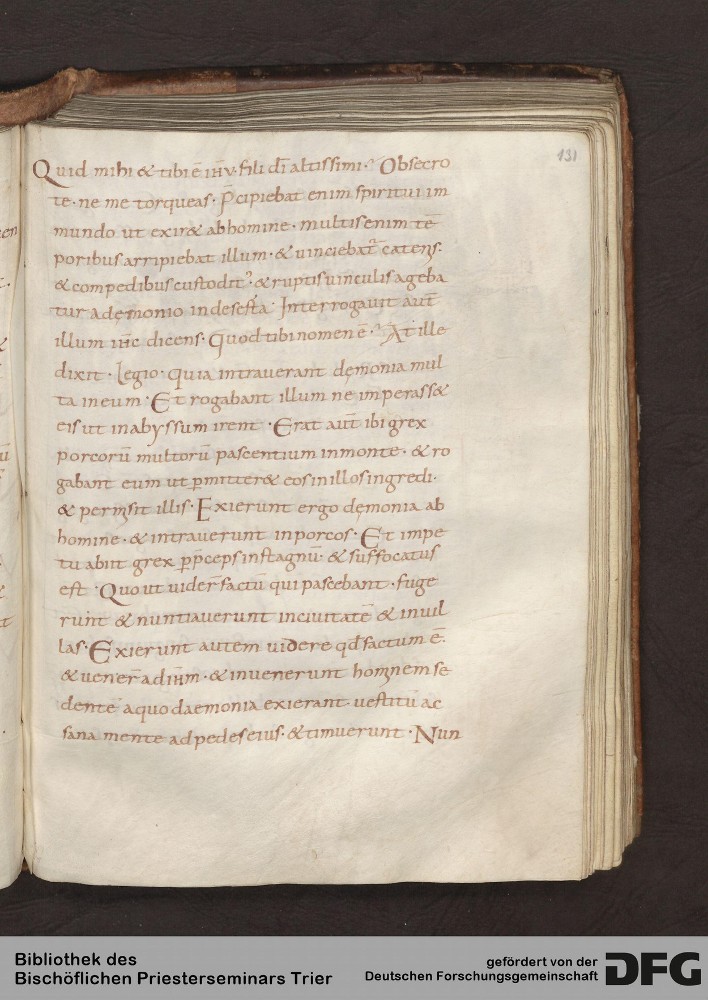 131
Quid mihi & tibi ē ihv· fili dī altissimi· Obsecro
te· ne me torqueas· P̄cipiebat enim spiritui im
mundo ut exir& ab homine· multis enim tē
poribus arripiebat illum· & vinciebat᷑ catenis·
& compedibus custodit᷑· & ruptis vinculis ageba
tur a demonio in deserta· Interrogavit aut̄
illum ihc̄ dicens· Quod tibi nomen ē· At ille
dixit· Legio· quia intraverant dęmonia mul
ta in eum· Et rogabant illum ne imperass&
eis ut in abyssum irent· Erat aut̄ ibi grex
porcorū multorū pascentium in monte· & ro
gabant eum ut ꝑmitter& eos in illos ingredi·
& permisit illis· Exierunt ergo dęmonia ab
homine· & intraverunt in porcos· Et impe
tu abiit grex ꝑp̄ceps in stagnū· & suffocatus
est· Quo ut vider̄ factū qui pascebant· fuge
runt & nuntiaverunt in civitatē & in vil
las· Exierunt autem videre qd̄ factum ē·
& vener̄ ad ihm̄· & invenerunt hominem se
dentē a quo daemonia exierant· vestitū ac
sana mente ad pedes eius· & timuerunt· Nun
Bibliothek des
Bischöflichen Priesterseminars Trier
gefördert von der
Deutschen Forschungsgemeinschaft
DFG